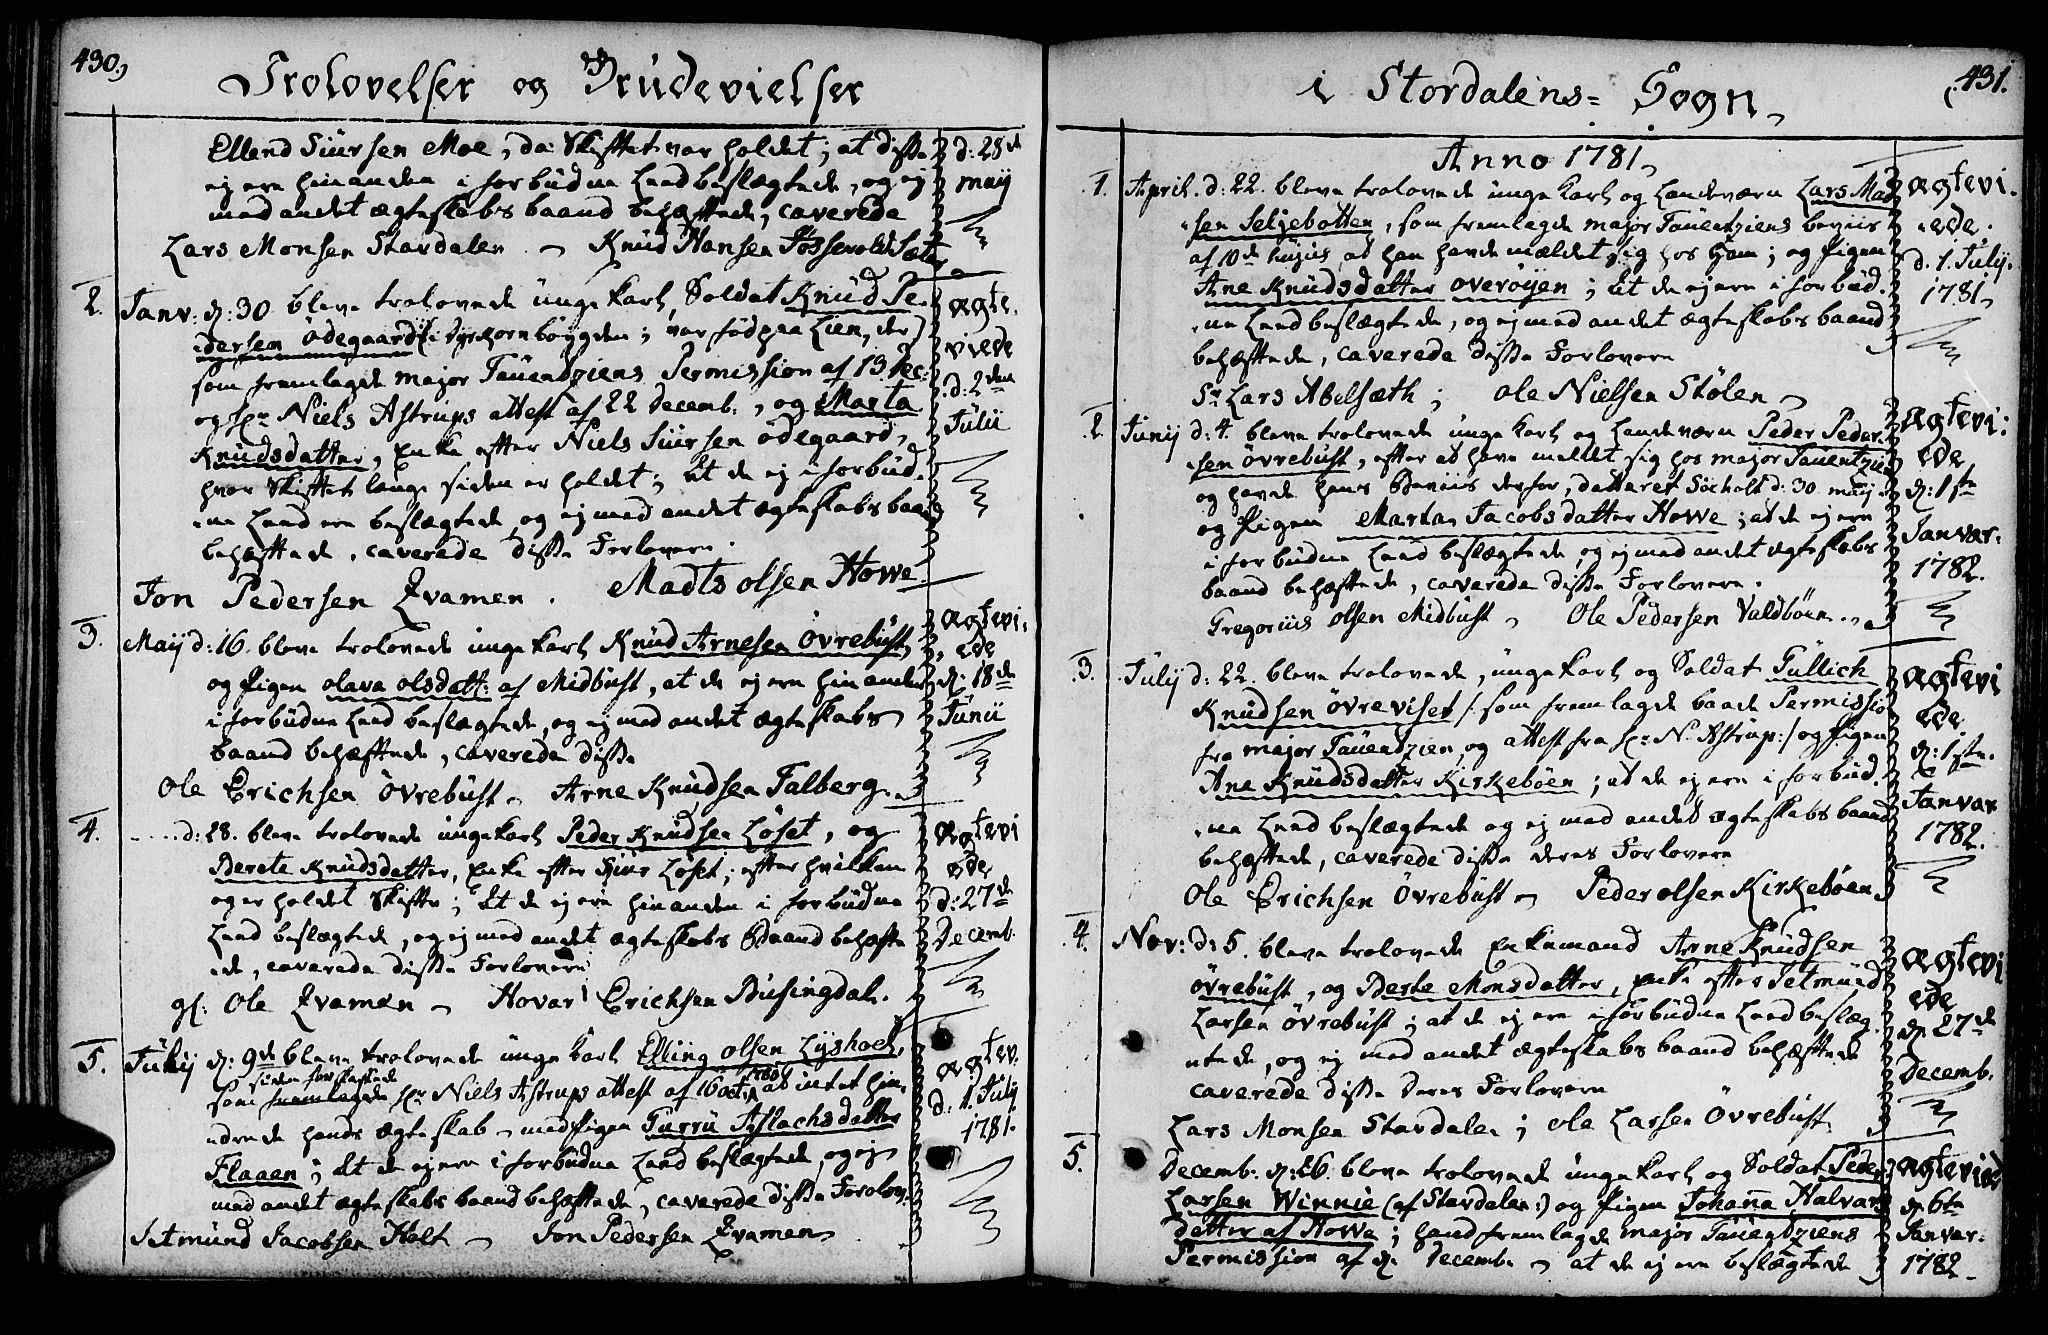 430.
Trolovelser og Brudevielser
Ellend Siursen Moe, da Skiftet var holdet; at disse
ej ere hinanden i forbudne Leed beslægtede, og ej
med andet ægteskabs baand behæftede, caverede
Lars Monsen Stavdalen - Knud Hansen
d: 28de
maij
2. Janv: d: 30 bleve trolovede unge karl, Soldat Knud Pe-
dersen Ödegaard (i Dyrkornbøygden; var fød paa Lien, der)
som fremlagde major Tauendziens Permission af 13 Dec:
og Hr Niels Astrups attest af 22 Decemb:, og Marta
Knudsdatter, Enke efter Niels Siursen Ödegaard,
hvor Skiftet længe siden er holdet; At de ej i forbud-
ne Leed ere beslægtede, og ej med andet ægteskabs baand
behæftede, caverede disse Forlovere.
Jon Pedersen Kvamen. Madts olsen Howe.
ægte-
viede
d: 2den
Julii
3. Maij d: 16. bleve trolovede unge karl Knud Arnesen Övrebust,
og Pigen olava olsdatt: af Midbust, at de ej ere hinanden
i forbudne Leed beslægtede, og ej med andet ægteskabs
baand behæftede, caverede disse
Ole Erichsen Övrebust - Arne Knudsen Falberg.
ægtevi-
ede
d: 18de
Junii
4. ---- d: 28. bleve trolovede unge karl Peder Knudsen Löset, og
Berete Knudsdatter, Enke efter Siur Löset; efter hvilken
og er holdet Skifte; At de ej ere hinanden i forbudne
Leed beslægtede, og ej med andet ægteskabs Baand behæfte-
de, caverede disse Forlovere
gl: Ole Kvamen - Hovar Erichsen Busingdal.
ægtevi
ede
d: 27de
Decemb.
5. Julij d: 9de bleve trolovede unge karl Elling olsen Lyshoel,
siden forskaffede
som fremlagde Hr Niels Astrups attest af 16 oct: 1780 at intet hin-
drede hands ægteskab - med Pigen Turru Aslachsdatter
Flaaen; At de ej ere i forbudne Leed beslægtede, og ej
med andet ægteskabs baand behæftede, caverede disse Forlov:
Setmund Jacobsen Holt - Jon Pedersen Kvamen
ægtev.
d: 1. July
1781.
i Stordalens= Sogn
431.
Anno 1781
1. April. d: 22. bleve trolovede unge karl og Landeværn Lars Mad-
sen Seljebotten, som fremlagde major Tauentziens beviis
af 10de hujus at han havde mældet sig hos Ham; og Pigen
Ane Knudsdatter overöyen; At de ej ere i forbud-
ne Leed beslægtede, og ej med andet ægteskabs baand
behæftede, caverede disse Forlovere
Sr Lars Abelsæth; ole Nielsen Stölen
ægtevi-
ede.
d. 1. July.
1781
2. Junij d: 4. bleve trolovede unge karl og Landeværn Peder Peder-
sen övrebust, efter at have meldet sig hos major Tauentzien
og havde hans Beviis derfor, datteret Söeholt d: 30. maij
og Pigen Marta Jacobsdatter Howe; at de ej ere
i forbudne Leed beslægtede, og ej med andet ægteskabs
baand behæftede, caverede disse Forlovere.
Gregorius olsen Midbust - Ole Pedersen Valdböen.
ægtevi:
ede
d: 1ste
Janvar:
1782.
3. Julij d: 22. bleve trolovede, unge karl og Soldat Tullich
Knudsen övreviset /: som fremlagde baade Permissio
fra major Tauendzien og attest fra Hr: N. Astrup:/ og Pigen
Ane Knudsdatter Kirkeböen; at de ej ere i forbud-
ne Leed beslægtede og ej med andet ægteskabs baand
behæftede, caverede disse deres Forlovere
Ole Erichsen Övrebust - Peder olsen Kirkeböen
ægtevi
ede
d: 1ste.
Janvar
1782.
4. Nov: d: 5. bleve trolovede Enkemand Arne Knudsen
övrebust, og Berte Monsdatter, Enke efter Setmund
Larsen övrebust; at de ej ere i forbudne Leed beslæg-
tede, og ej med andet ægteskabs baand behæftede
caverede disse deres Forlovere
Lars Monsen Stavdalen; ole Larsen Övrebust
ægtevi
ede
d. 27de
Decemb.
5. Decemb: d: 26. bleve trolovede unge karl og Soldat Peder
Larsen Winnie (af Stavdalen:) og Pigen Johanna Halvars
datter af Howe; hand fremlagde major Tauendziens
Permission af d. Decemb: - at de ej ere beslægtede
ægteviede
d: 6te
Janvar:
1782